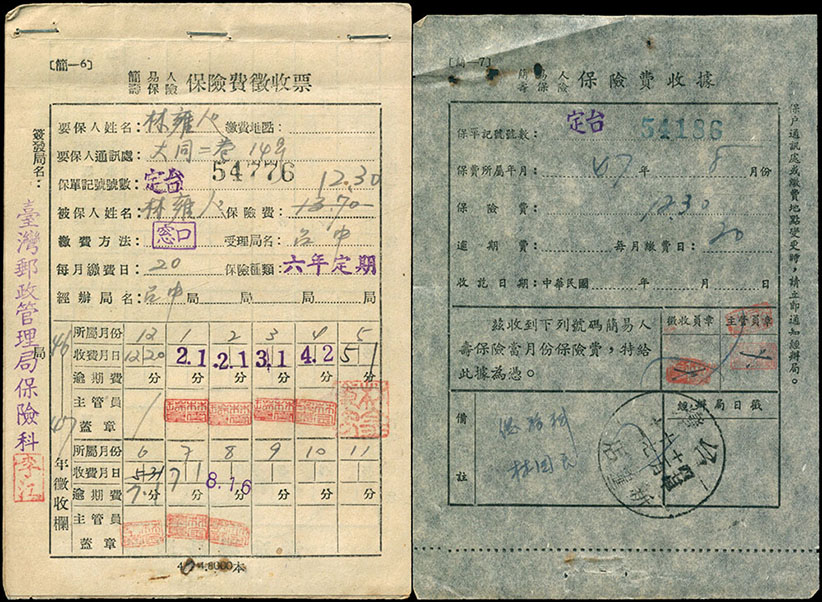 〔簡—6〕
簡易人壽保險 保險費徵收票
簽發局名：
臺灣郵政管理局保險科
李江
要保人姓名：林雍人 繳費地區：
要保人通訊處：大同二巷14号
保單記號號數：定台 54776
12.30
被保人姓名：林雍人 保險費：13.70
繳費方法：窓口 受理局名：台中
每月繳費日：20 保險種類：六年定期
經辦局名：台中局 局 局 局
46
47
年徵收欄
所屬月份 12 1 2 3 4 5
收費月日 12 20 2.1 2.1 3.1 4.2 5 1
逾期費 分 分 分 分 分 分
主管員蓋章
所屬月份 6 7 8 9 10 11
收費月日 5.31 7 1 8.16
逾期費 分 分 分 分 分 分
主管員蓋章
〔簡—7〕
簡易人壽保險 保險費收據
保單記號號數：定台 54186
保費所屬年月：47年8月份
保險費：1230
逾期費： 每月繳費日：20
收訖日期：中華民國 年 月 日
茲收到下列號碼簡易人
壽保險當月份保險費，特給
此據為憑。
徵收員章 主管員章
經辦局日戳
備註
林國民
保戶通訊處或繳費地點變更時，請立卽通知經辦局。